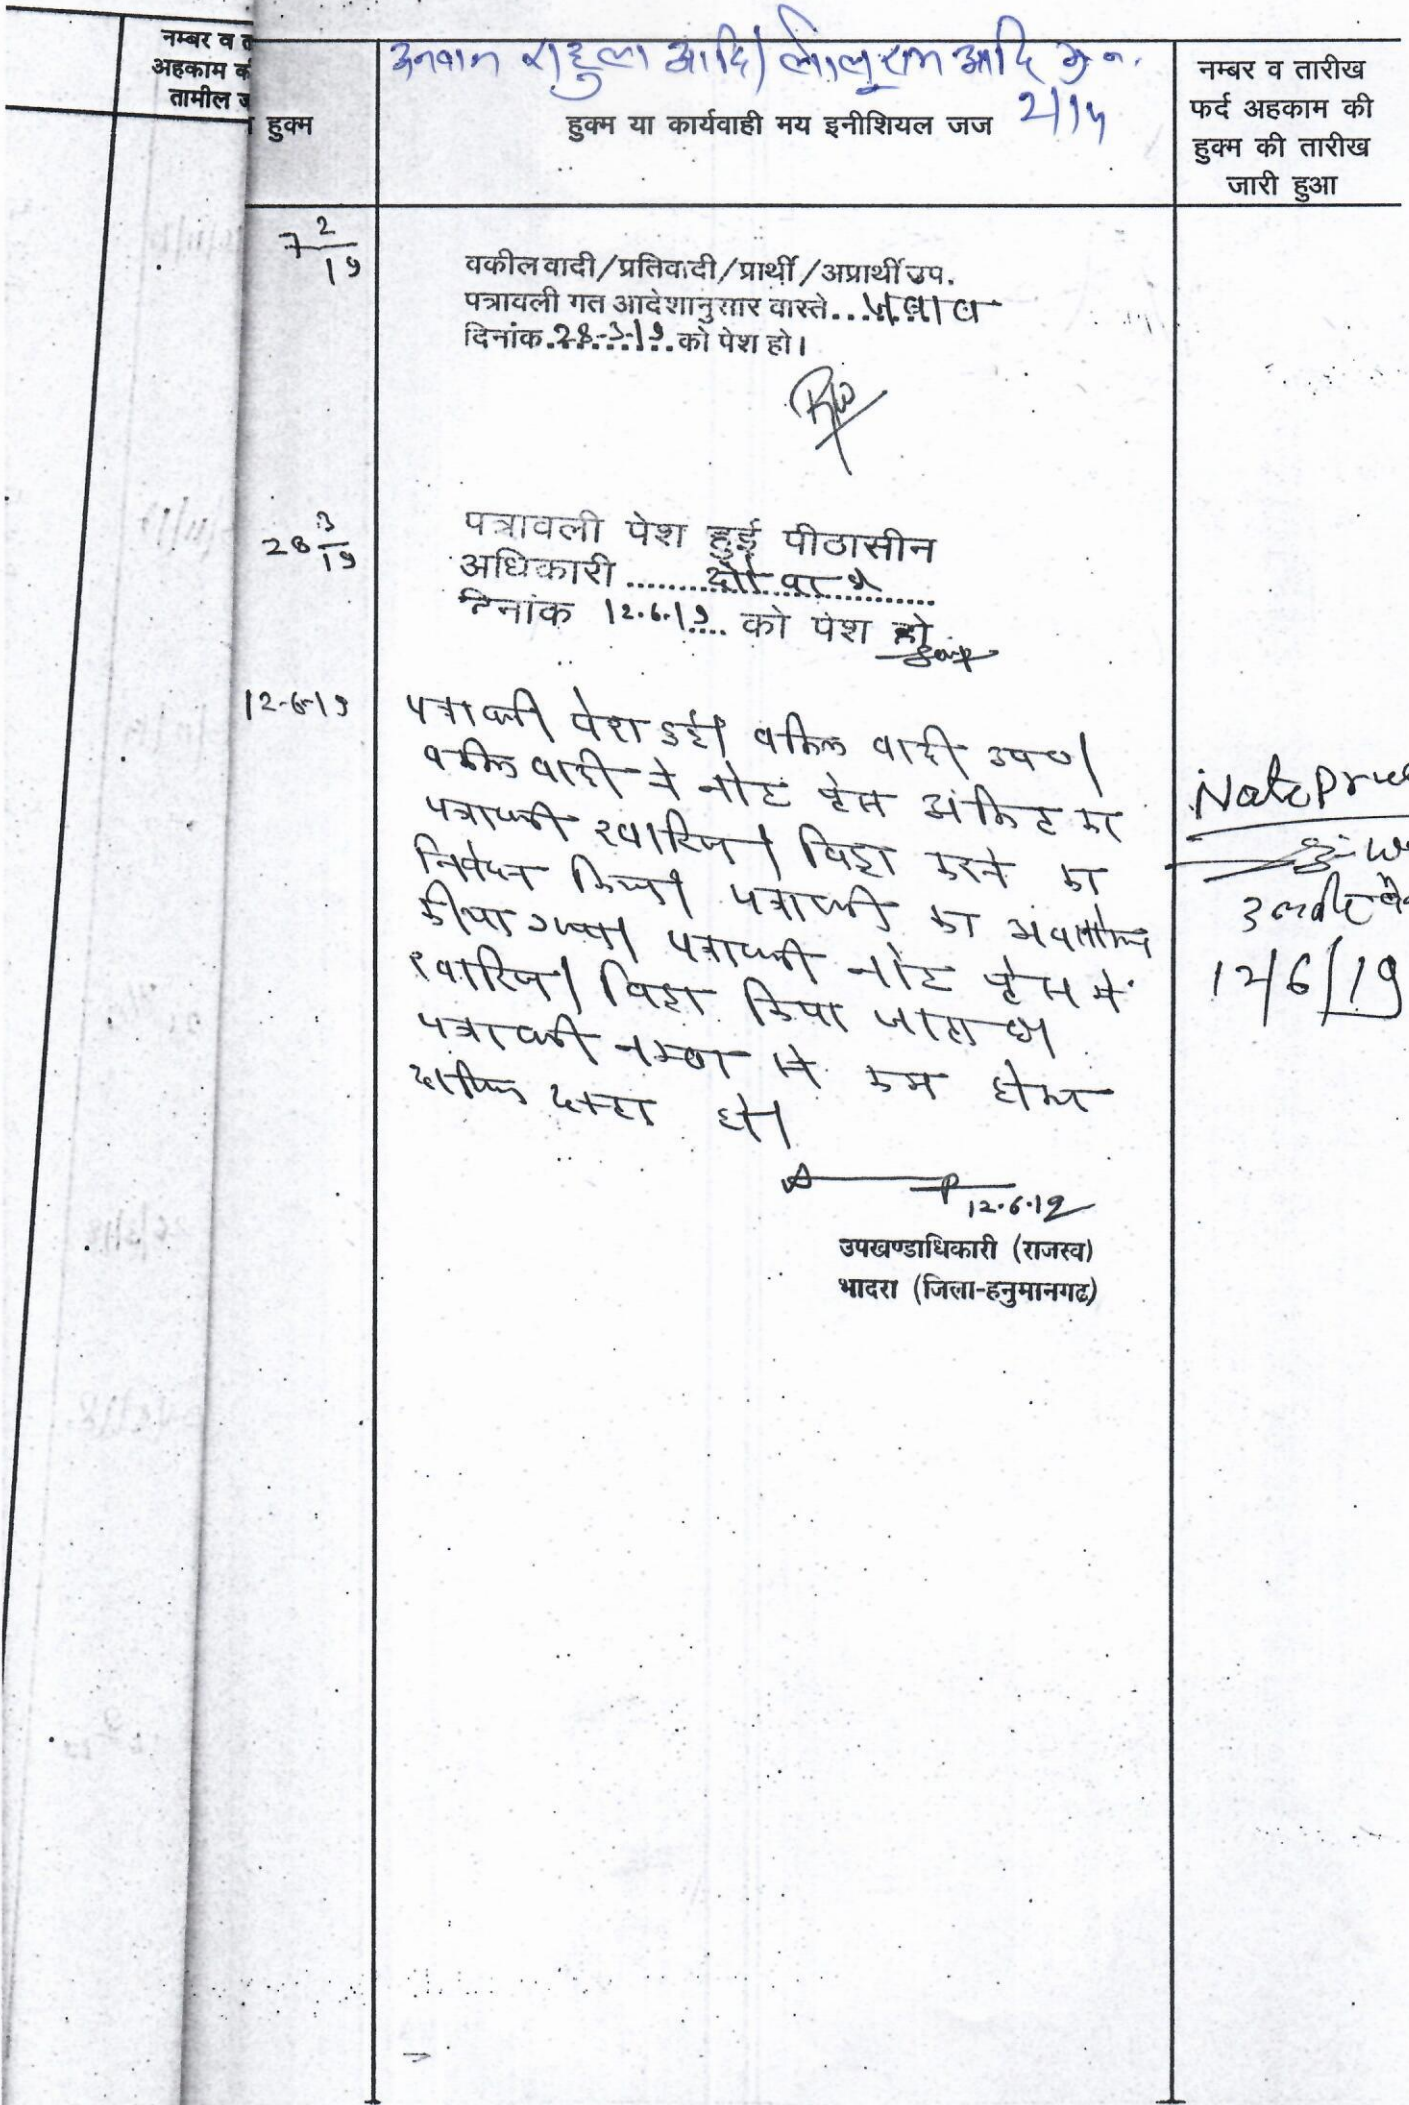 नम्बर व त
अहकाम की
तामील ज
हुक्म
अनवान राहुला आदि / लालूराम आदि मु.न.
2/14
हुक्म या कार्यवाही मय इनीशियल जज
नम्बर व तारीख
फर्द अहकाम की
हुक्म की तारीख
जारी हुआ
7 2/19
वकील वादी/प्रतिवादी/प्रार्थी/अप्रार्थी उप.
पत्रावली गत आदेशानुसार वास्ते...जवाब
दिनांक.28-3-19.को पेश हो।
28 3/19
पत्रावली पेश हुई पीठासीन
अधिकारी
दिनांक 12.6.19.... को पेश हो
12-6-19
पत्रावली पेश हुई। वकिल वादी उप०।
वकिल वादी ने नोट प्रेस अंकित कर
पत्रावली खारिज / विड्रा करने का
निवेदन किया। पत्रावली का अवलोकन
कीया गया। पत्रावली नोट प्रेस में
खारिज / विड्रा किया जाता है।
पत्रावली नम्बर से कम होकर
दाखिल दफ्तर हो।
12.6.19
उपखण्डाधिकारी (राजस्व)
भादरा (जिला-हनुमानगढ)
Note Pre
12/6/19